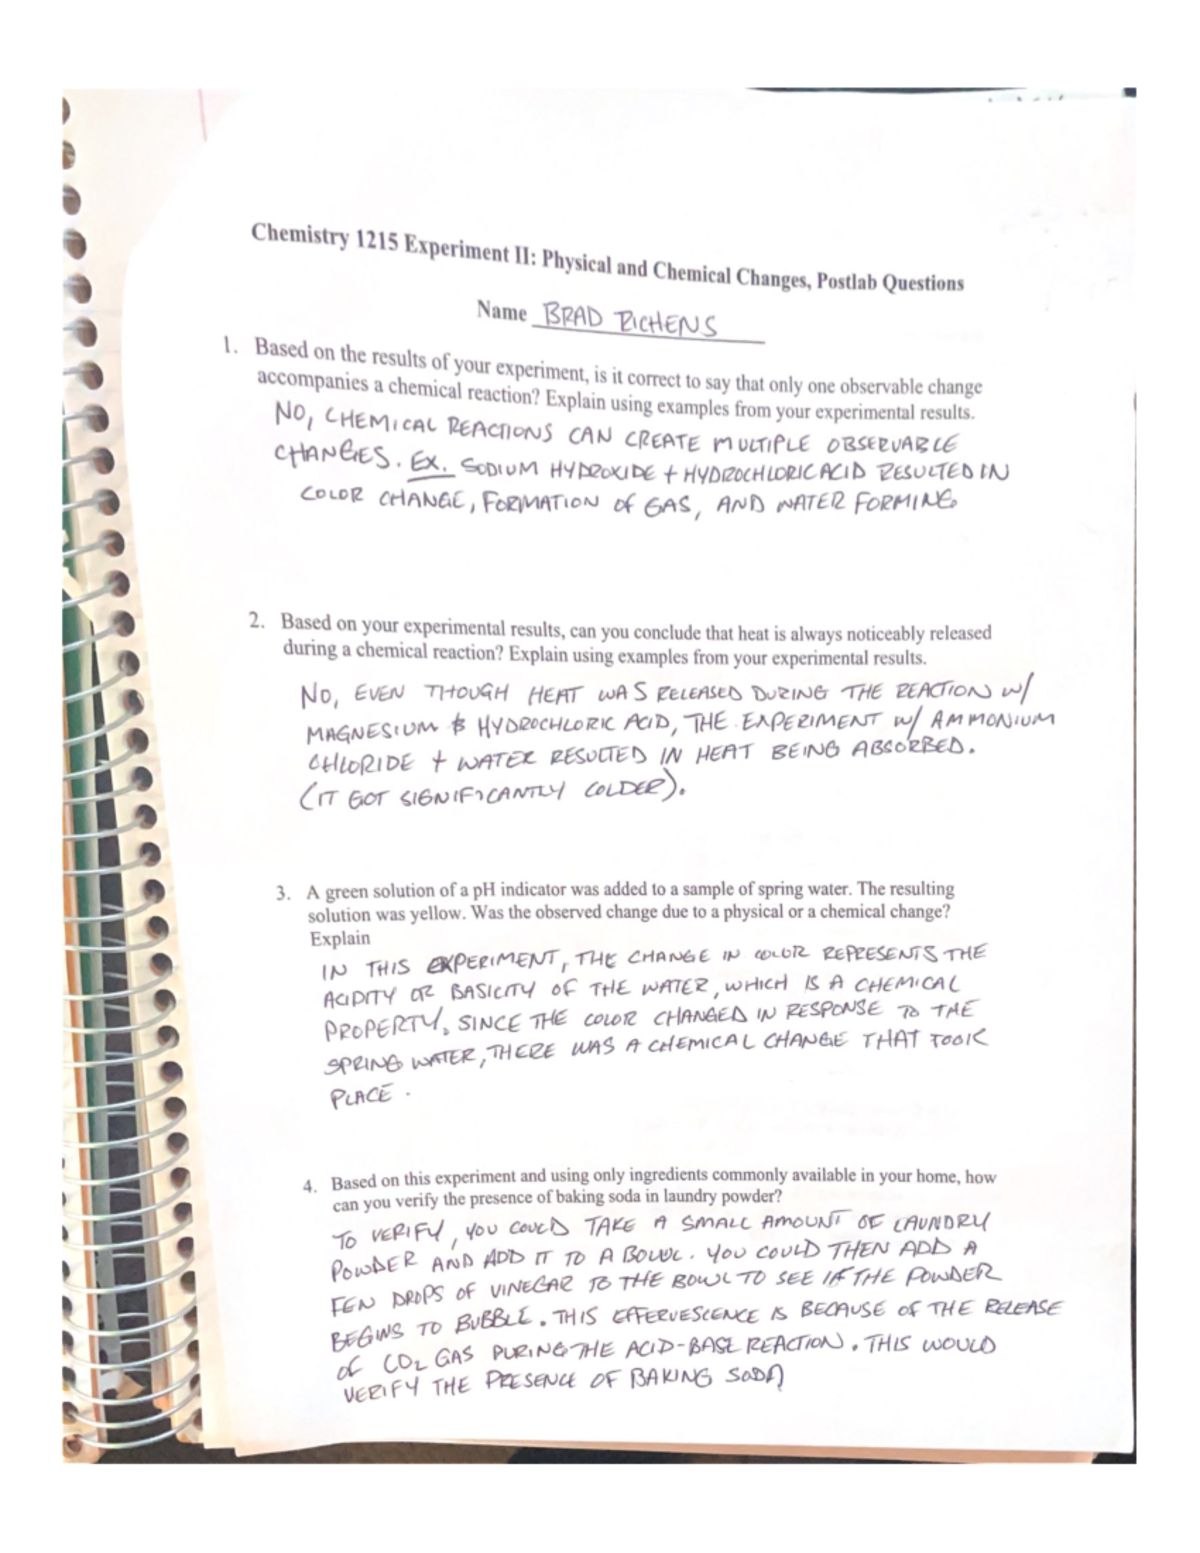 Chemistry 1215 Experiment II: Physical and Chemical Changes, Postlab Questions
Name BRAD RICHENS
1. Based on the results of your experiment, is it correct to say that only one observable change
accompanies a chemical reaction? Explain using examples from your experimental results.
NO, CHEMICAL REACTIONS CAN CREATE MULTIPLE OBSERVABLE
CHANGES. EX. SODIUM HYDROXIDE + HYDROCHLORIC ACID RESULTED IN
COLOR CHANGE, FORMATION OF GAS, AND WATER FORMING.
2. Based on your experimental results, can you conclude that heat is always noticeably released
during a chemical reaction? Explain using examples from your experimental results.
NO, EVEN THOUGH HEAT WAS RELEASED DURING THE REACTION W/
MAGNESIUM & HYDROCHLORIC ACID, THE EXPERIMENT W/ AMMONIUM
CHLORIDE + WATER RESULTED IN HEAT BEING ABSORBED.
(IT GOT SIGNIFICANTLY COLDER).
3. A green solution of a pH indicator was added to a sample of spring water. The resulting
solution was yellow. Was the observed change due to a physical or a chemical change?
Explain
IN THIS EXPERIMENT, THE CHANGE IN COLOR REPRESENTS THE
ACIDITY OR BASICITY OF THE WATER, WHICH IS A CHEMICAL
PROPERTY. SINCE THE COLOR CHANGED IN RESPONSE TO THE
SPRING WATER, THERE WAS A CHEMICAL CHANGE THAT TOOK
PLACE.
4. Based on this experiment and using only ingredients commonly available in your home, how
can you verify the presence of baking soda in laundry powder?
TO VERIFY, YOU COULD TAKE A SMALL AMOUNT OF LAUNDRY
POWDER AND ADD IT TO A BOWL. YOU COULD THEN ADD A
FEW DROPS OF VINEGAR TO THE BOWL TO SEE IF THE POWDER
BEGINS TO BUBBLE. THIS EFFERVESCENCE IS BECAUSE OF THE RELEASE
OF CO2 GAS DURING THE ACID-BASE REACTION. THIS WOULD
VERIFY THE PRESENCE OF BAKING SODA